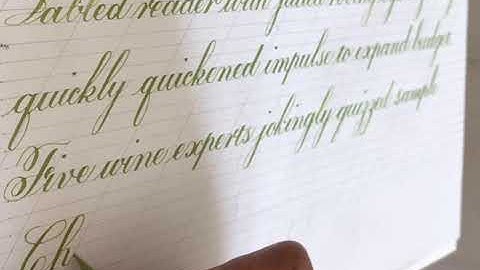 Fabled reader with jaded
quickly quickened impulse to expand budget
Five wine experts jokingly quizzed sample
Ch